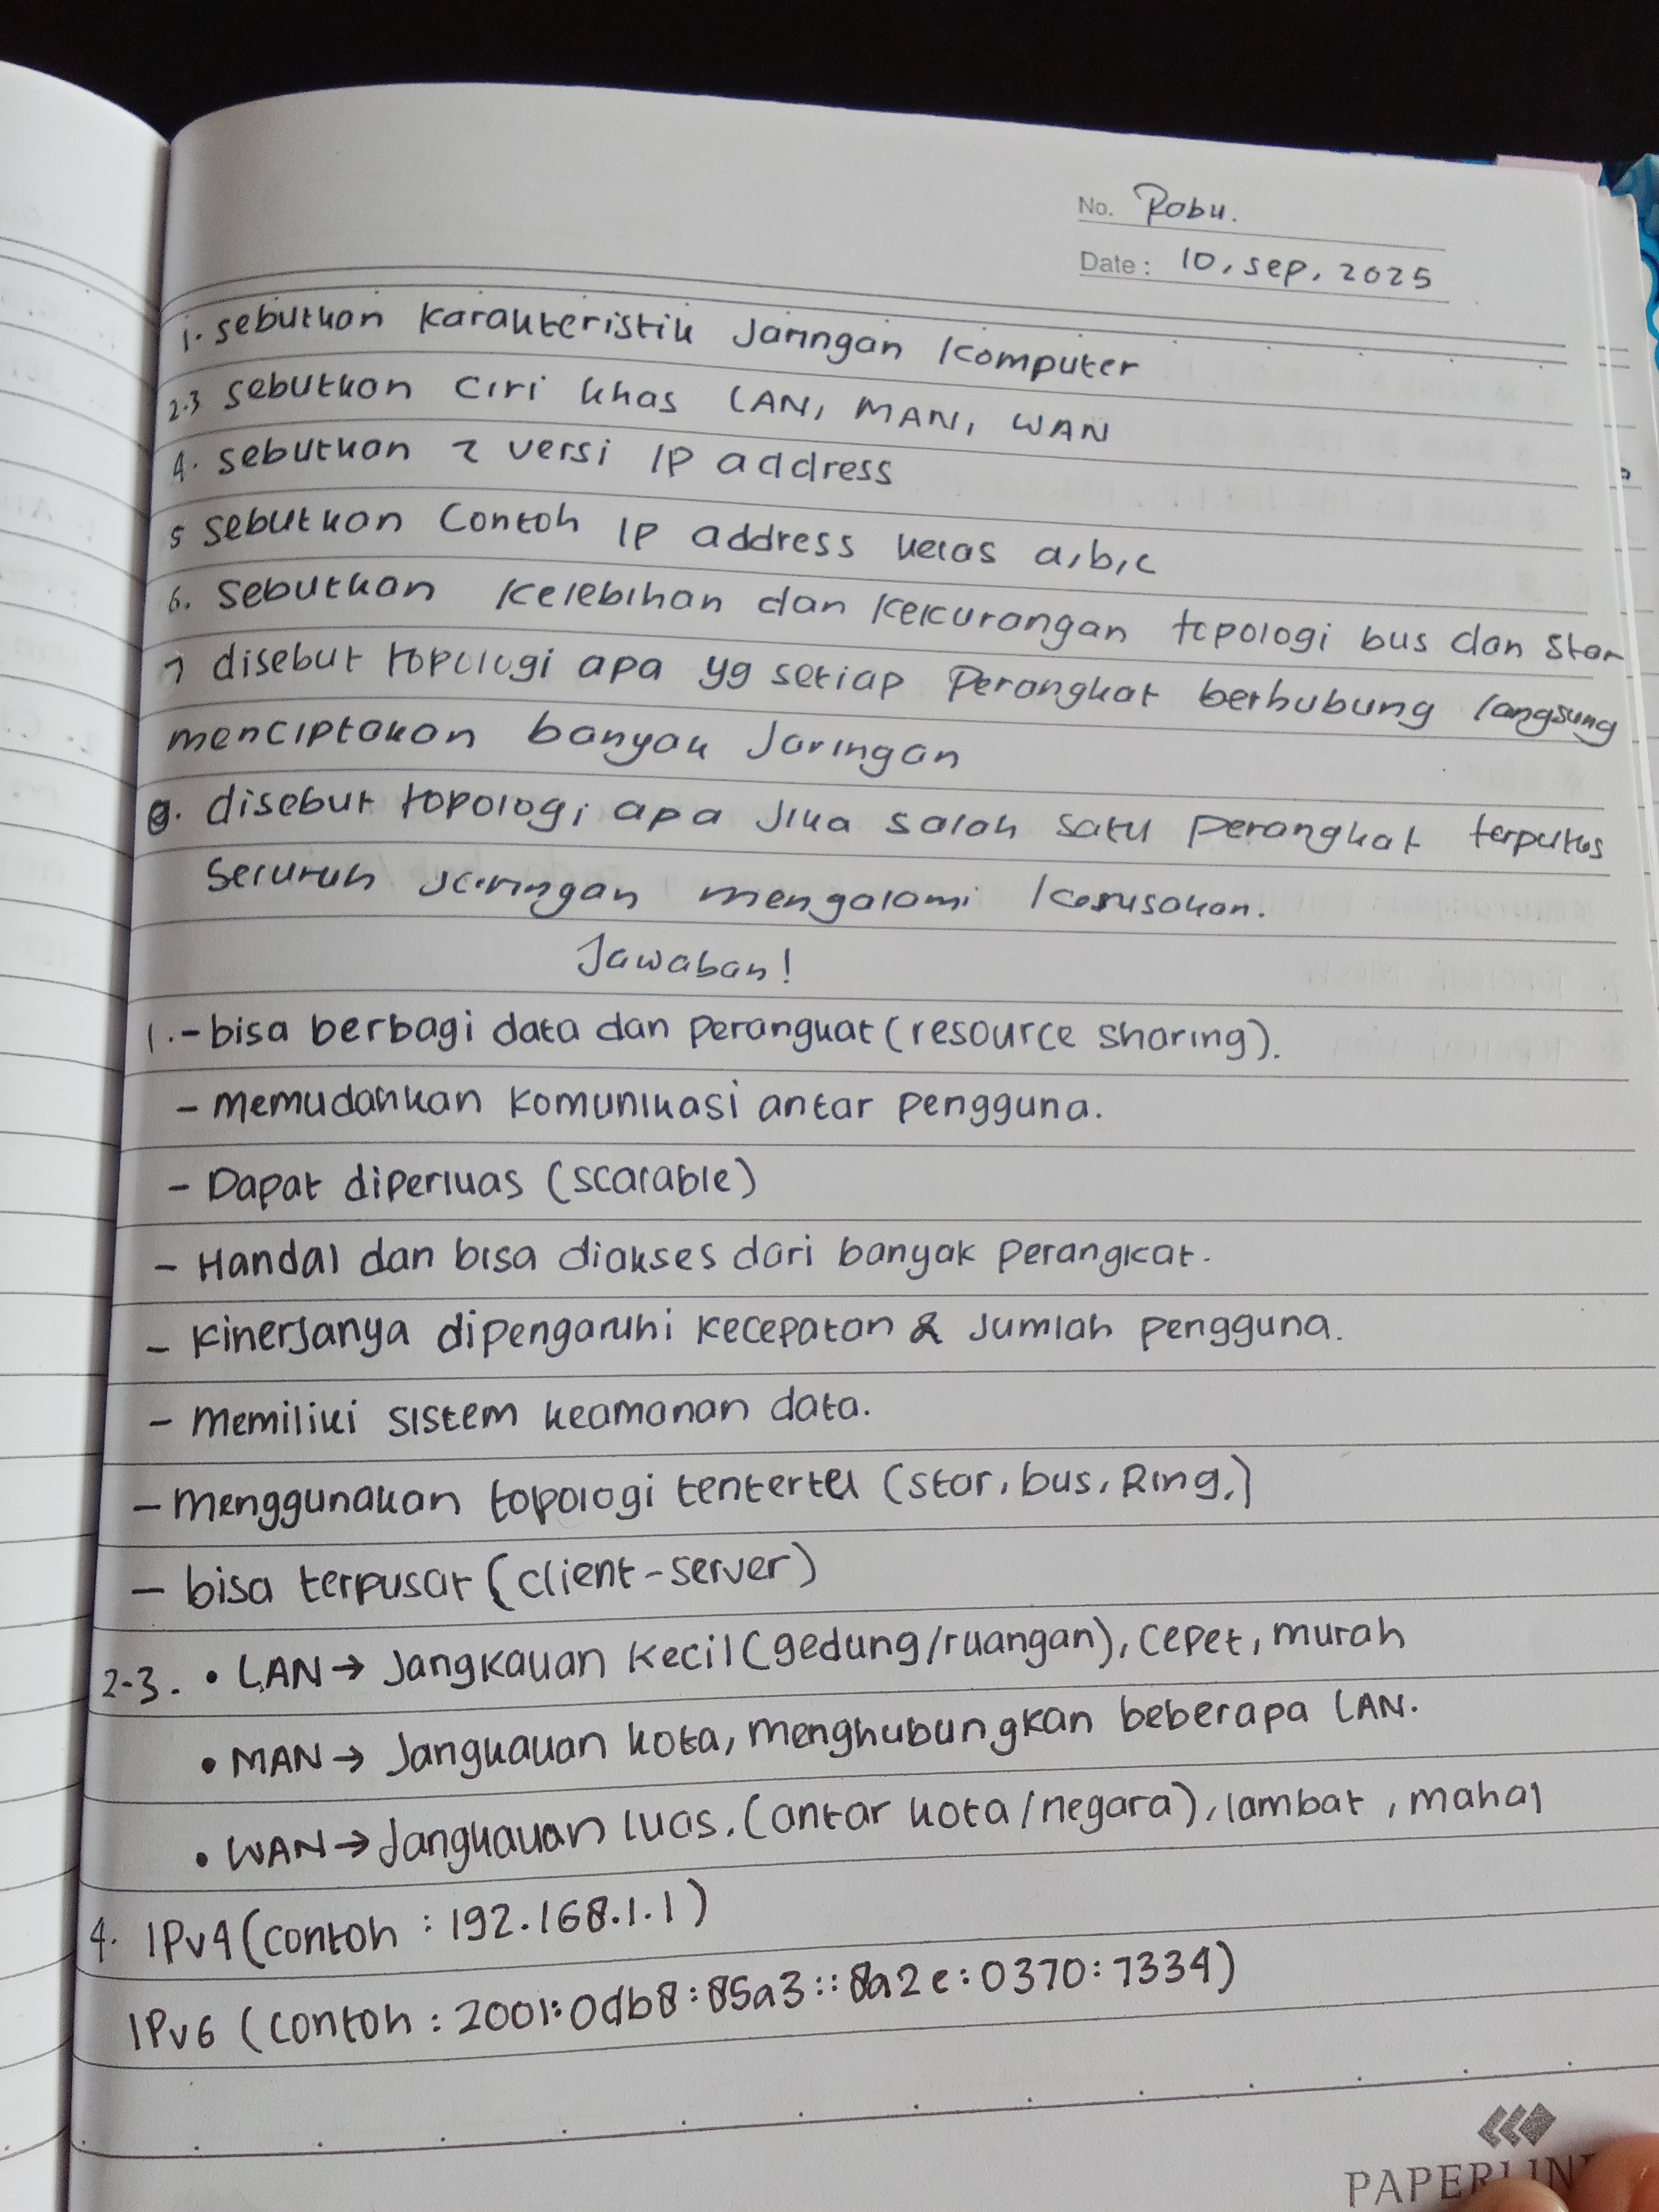 No. Rabu.
Date : 10, sep, 2025
1. sebutkan karakteristik Jaringan Komputer
2.3 sebutkan ciri khas LAN, MAN, WAN
4. sebutkan 2 versi IP address
5 sebutkan Contoh IP address kelas a,b,c
6. Sebutkan kelebihan dan kekurangan topologi bus dan Star
7 disebut topologi apa yg setiap Perangkat berhubung langsung
menciptakan banyak Jaringan
8. disebut topologi apa Jika salah satu perangkat terputus
Seluruh Jaringan mengalami kerusakan.
Jawaban!
1. - bisa berbagi data dan perangkat (resource sharing).
- Memudahkan komunikasi antar pengguna.
- Dapat diperluas (scalable)
- Handal dan bisa diakses dari banyak perangkat.
- Kinerjanya dipengaruhi kecepatan & Jumlah pengguna.
- Memiliki sistem keamanan data.
- Menggunakan topologi tentertel (star, bus, Ring,)
- bisa terpusat (client-server)
2-3. • LAN → Jangkauan kecil (gedung/ruangan), cepet, murah
• MAN → Jangkauan kota, menghubungkan beberapa LAN.
• WAN → Jangkauan luas. (antar kota/negara), lambat, mahal
4. IPv4 (contoh : 192.168.1.1)
IPv6 (contoh : 2001:0db8:85a3::8a2e:0370:7334)